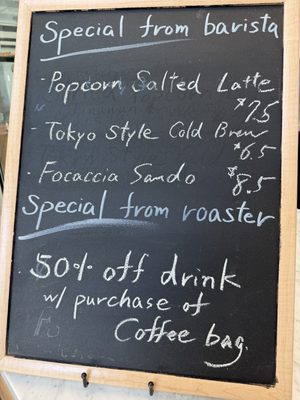 Special from barista
- Popcorn Salted Latte
$7.5
- Tokyo Style Cold Brew
$6.5
- Focaccia Sando
$8.5
Special from roaster
50% off drink
w/ purchase of
Coffee bag.